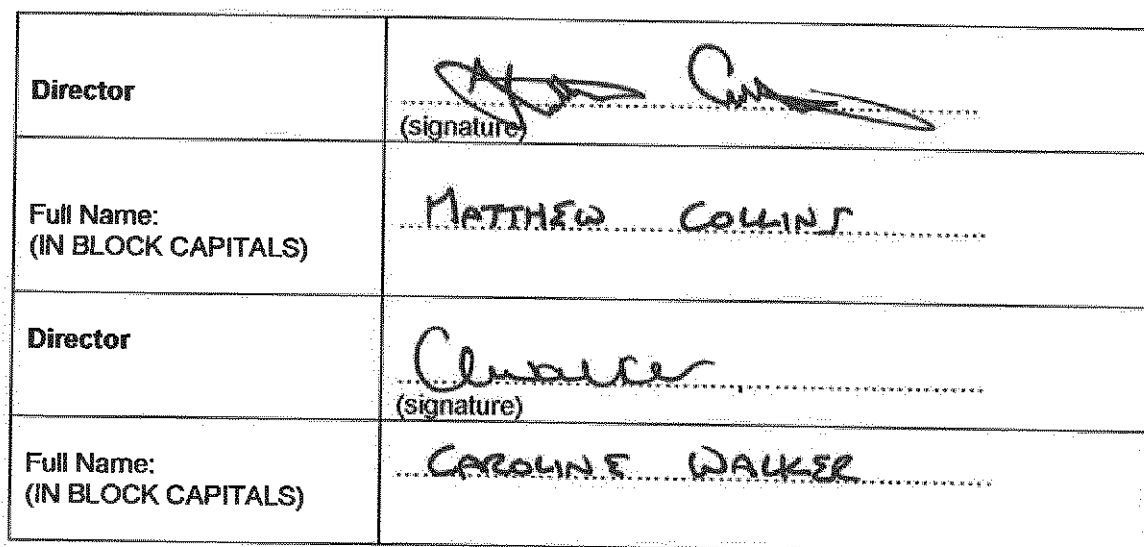 Director
(signature)
Full Name:
(IN BLOCK CAPITALS)
MATTHEW COLLINS
Director
Clwalker
(signature)
Full Name:
(IN BLOCK CAPITALS)
CAROLINE WALKER